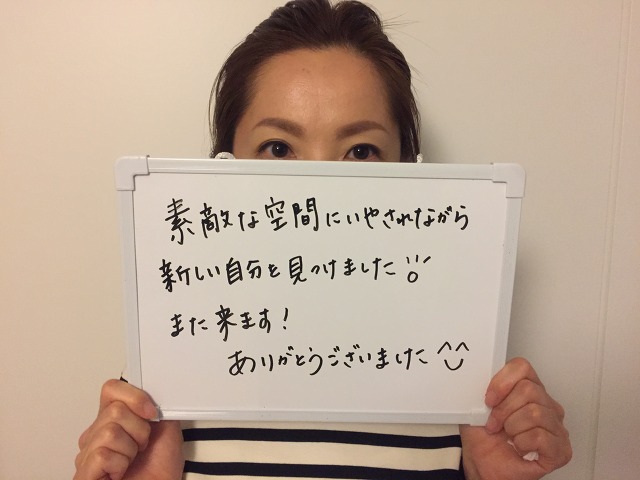 素敵な空間にいやされながら
新しい自分を見つけました
また来ます!
ありがとうございました^^